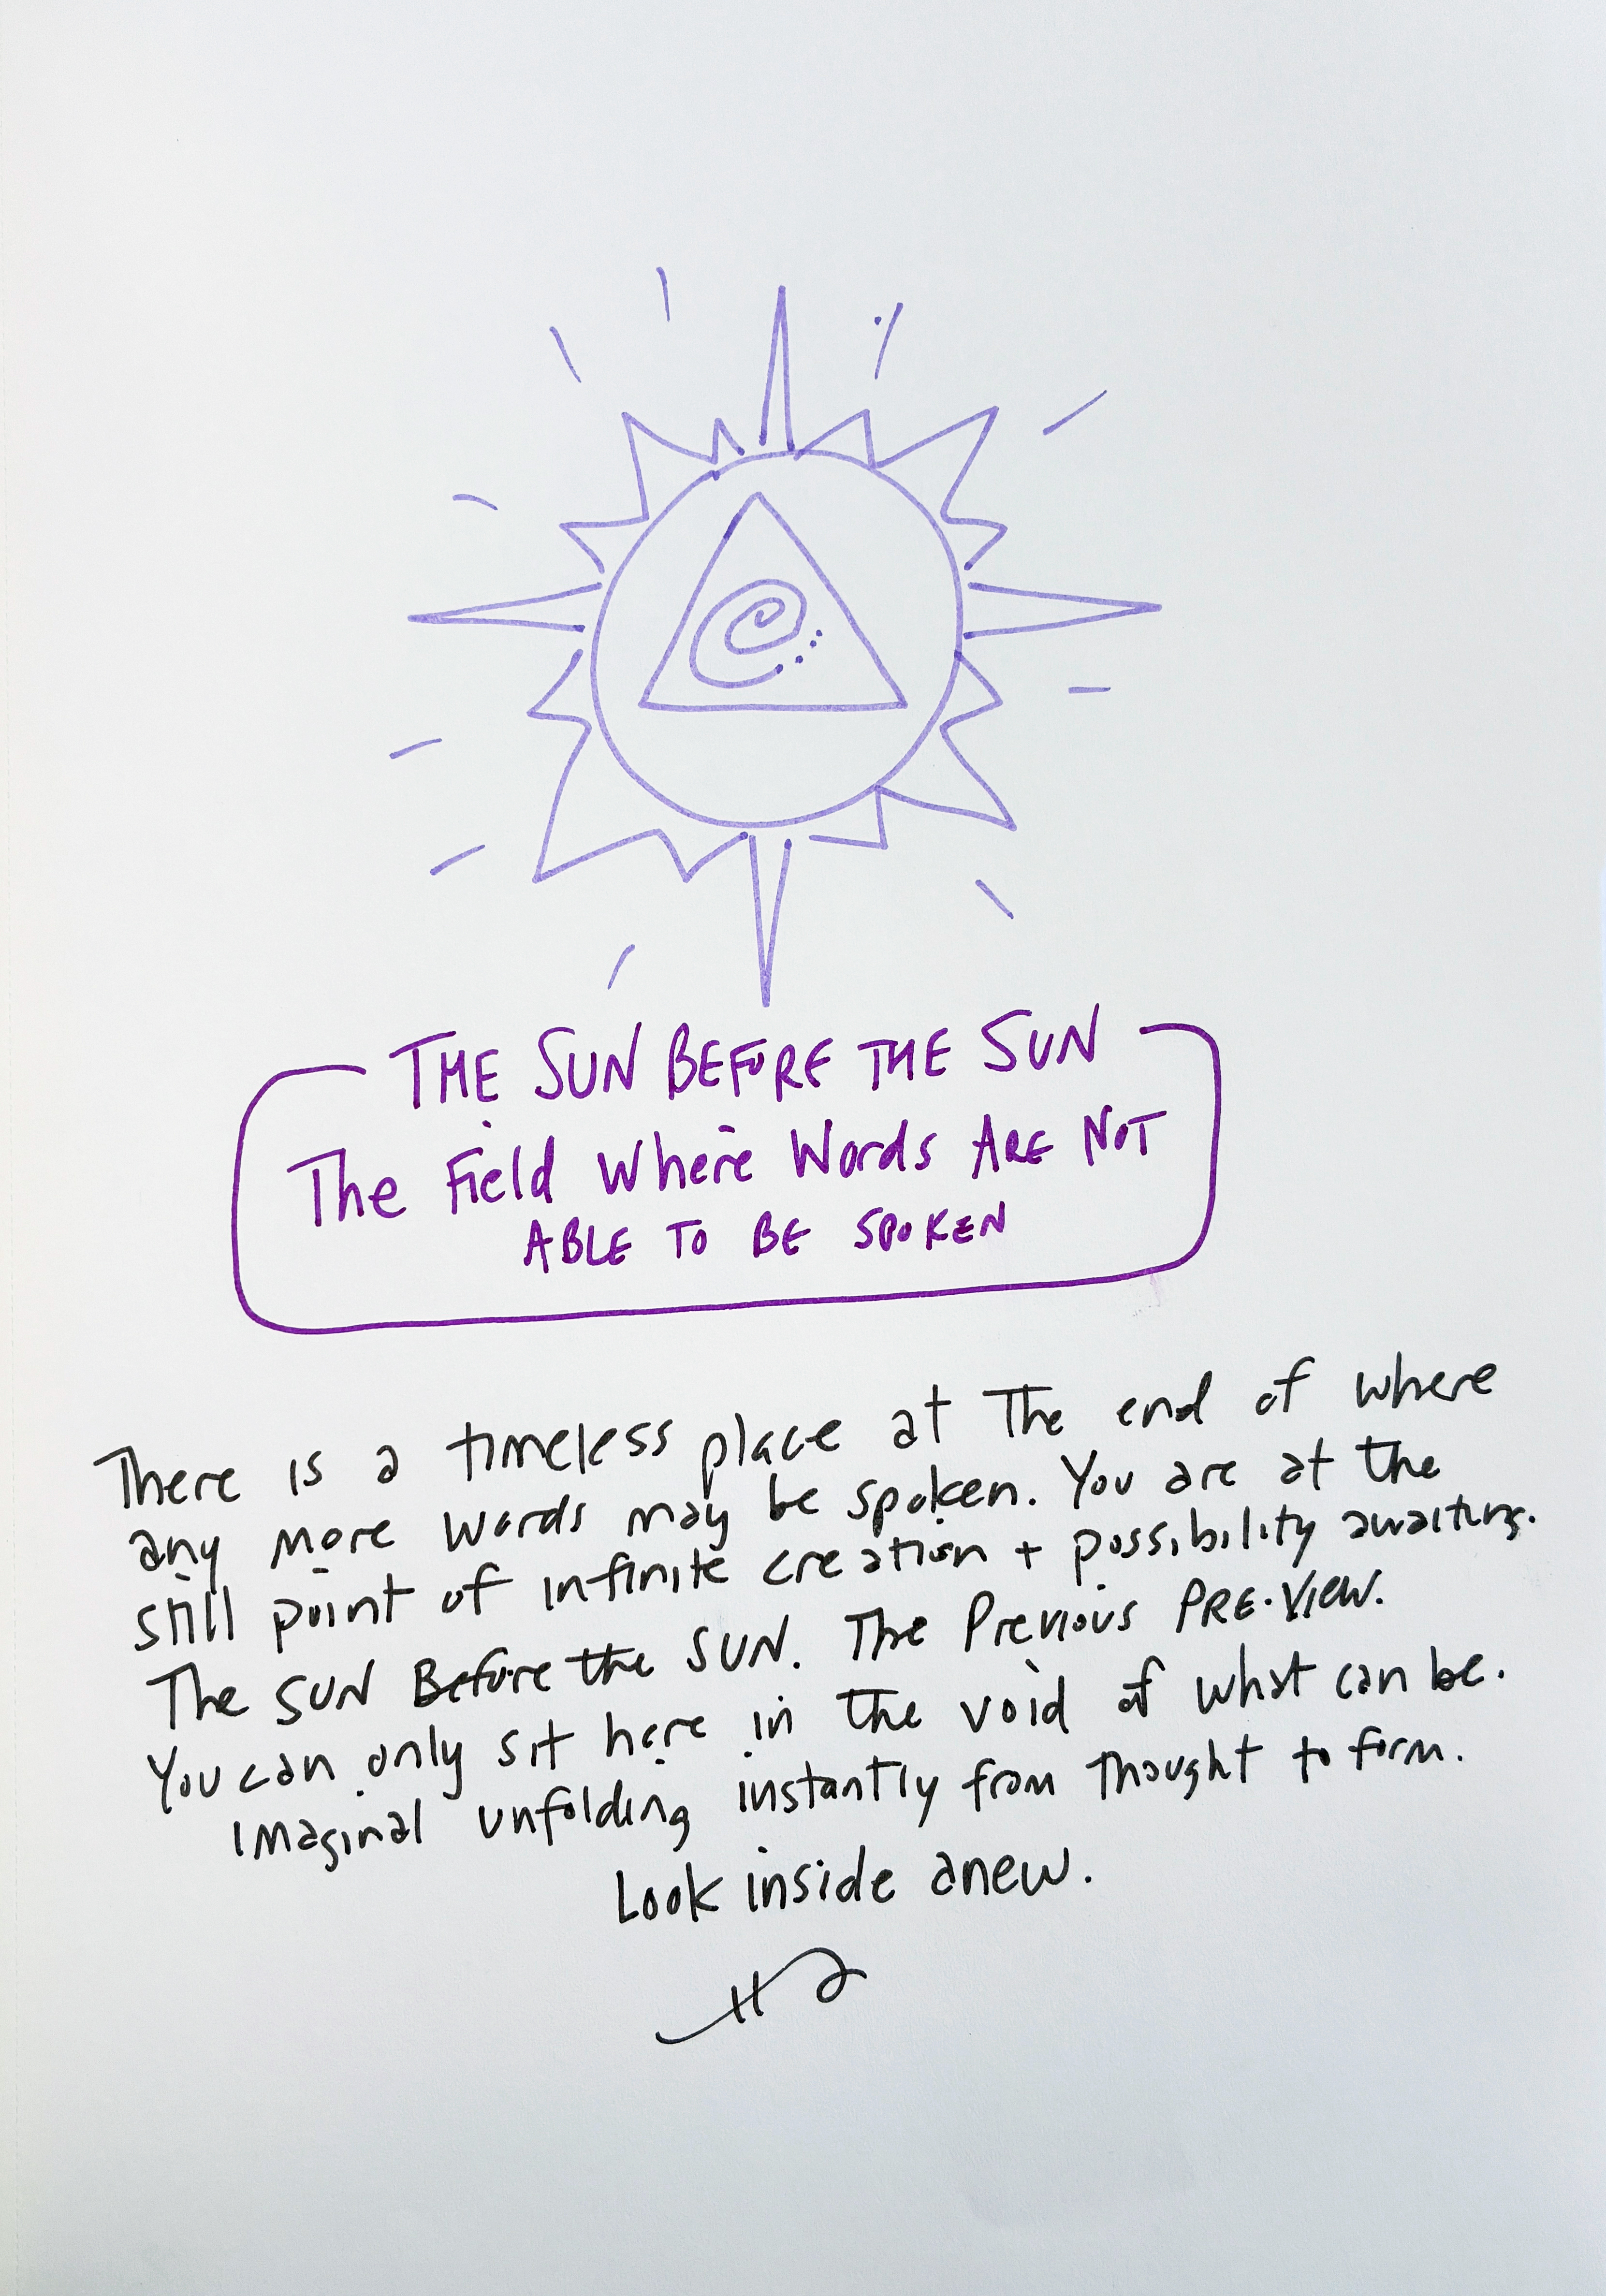 THE SUN BEFORE THE SUN
The Field Where Words ARE NOT
ABLE TO BE SPOKEN
There is a timeless place at The end of where
any more words may be spoken. You are at the
still point of infinite creation + possibility awaiting.
The SUN Before the SUN. The Previous PRE-VIEW.
You can only sit here in the void of what can be.
Imaginal unfolding instantly from Thought to form.
Look inside anew.